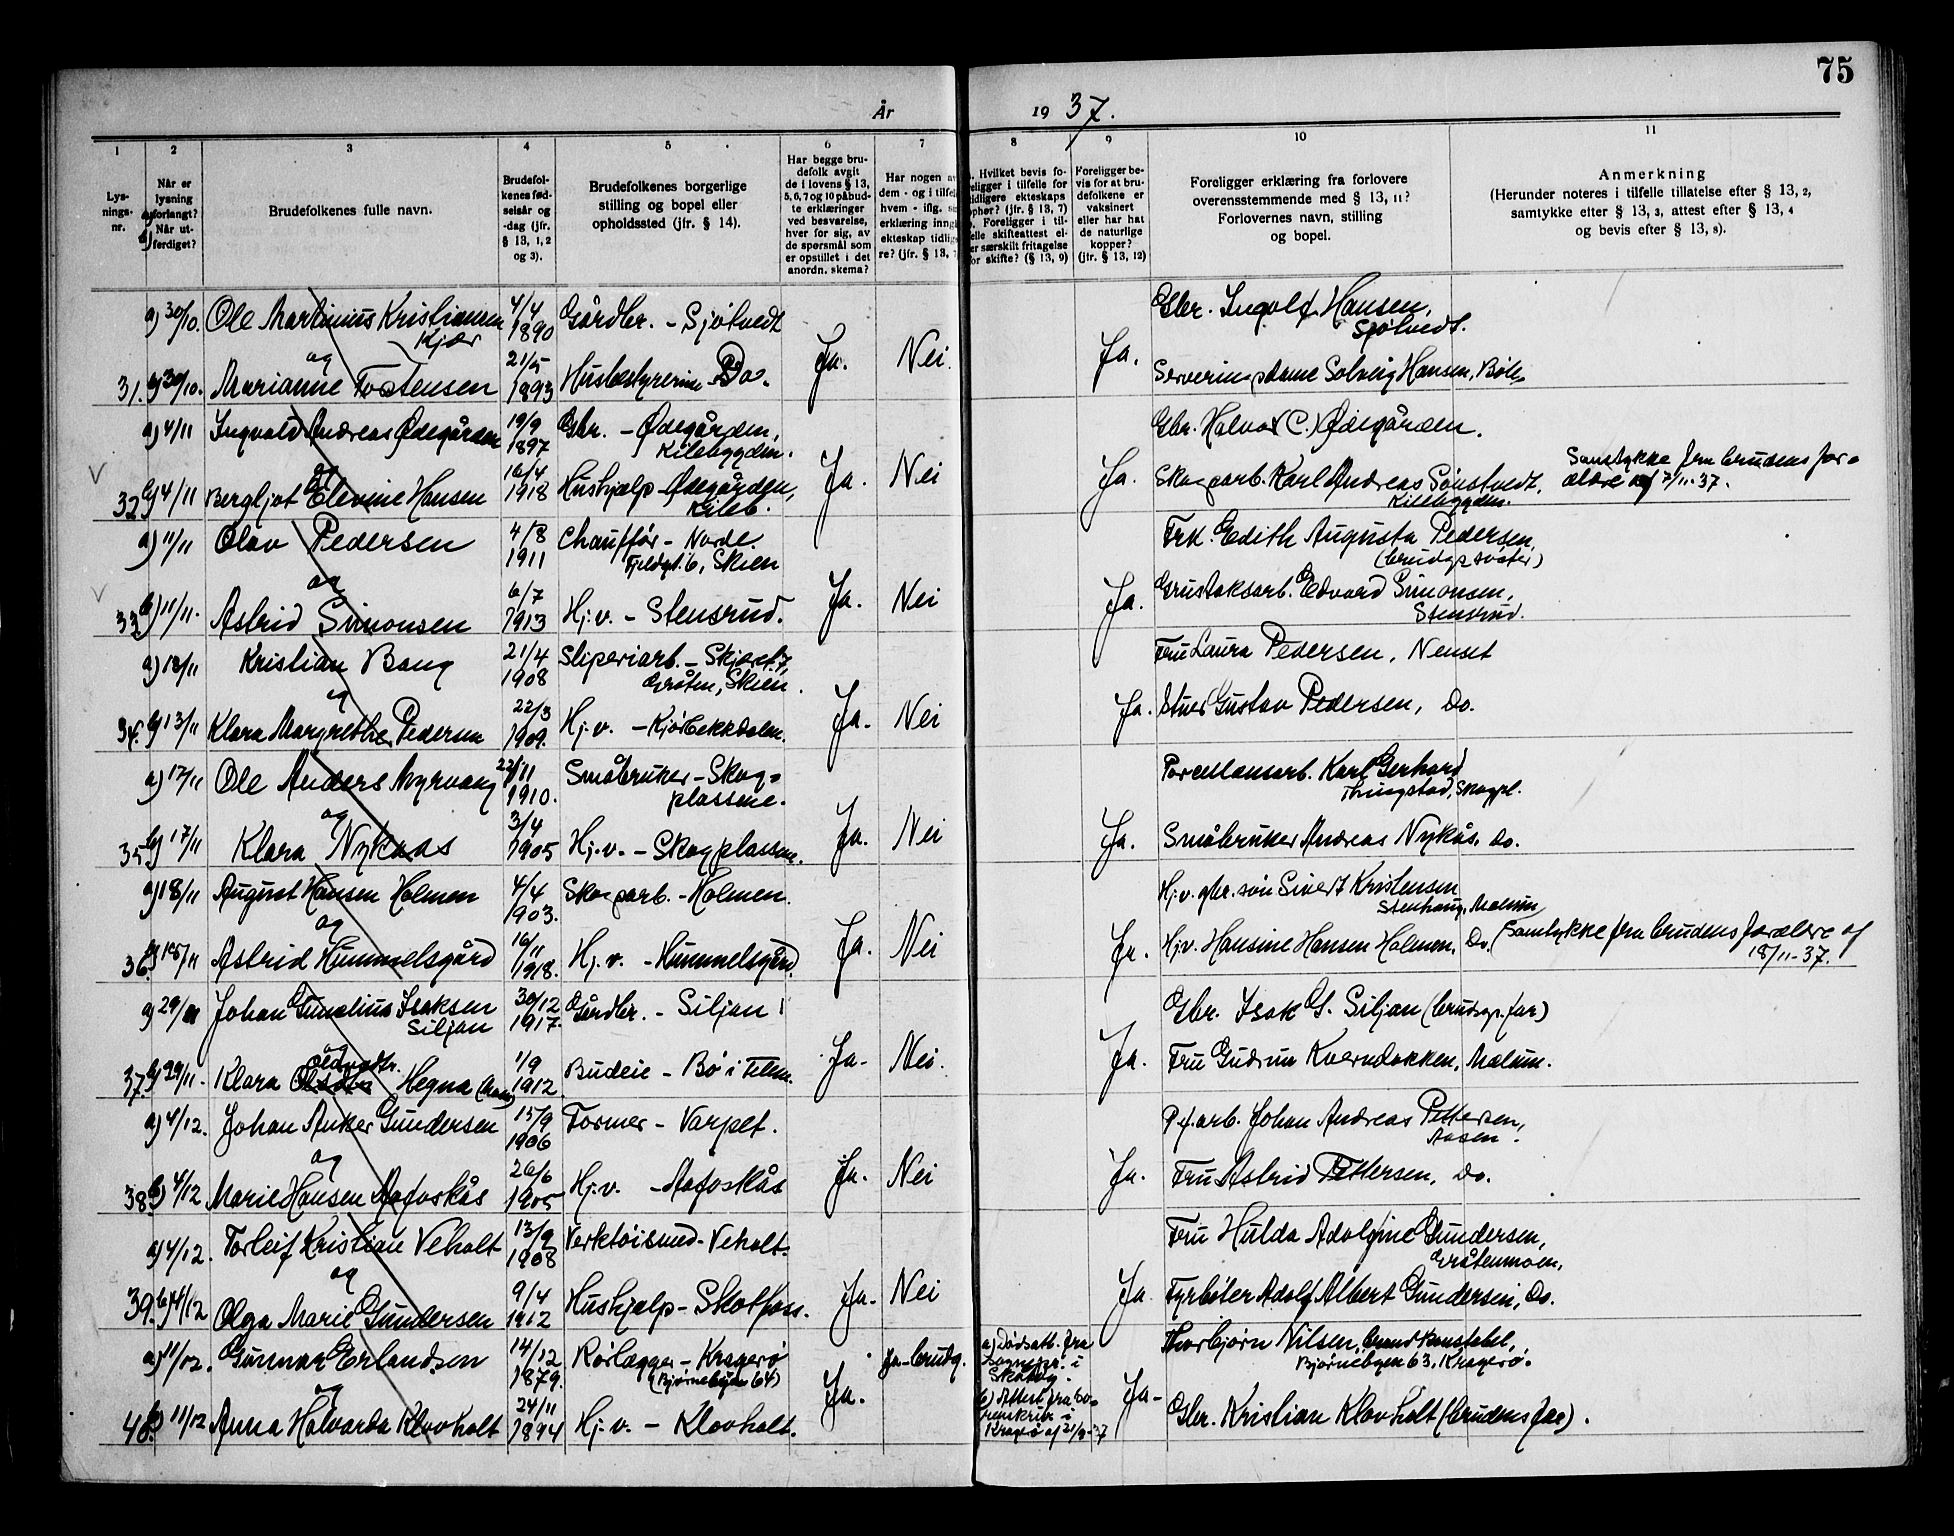 75
År 1937.
1 2 3 4 5 6 7 8 9 10 11
Lysnings-nr.
Når er lysning forlangt? Når utferdiget?
Brudefolkenes fulle navn.
Brudefolkenes fødselsår og -dag (jfr. § 13, 1, 2 og 3).
Brudefolkenes borgerlige stilling og bopel eller opholdssted (jfr. § 14).
Har begge brudefolk avgit de i lovens § 13, 5, 6, 7 og 10 påbudte erklæringer ved besvarelse, hver for sig, av de spørsmål som er opstillet i det anordn. skema?
Har nogen av dem - og i tilfelle hvem - iflg. erklæring inngått ekteskap tidligere? (jfr. § 13,
Hvilket bevis foreligger i tilfelle for tidligere ekteskaps ophør? (jfr. § 13, 7) Foreligger i tilfelle skifteattest eller særskilt fritagelse for skifte? (§ 13, 9)
Foreligger bevis for at brudefolkene er vaksinert eller har hat de naturlige kopper? (jfr. § 13, 12)
Foreligger erklæring fra forlovere overensstemmende med § 13, 11? Forlovernes navn, stilling og bopel.
Anmerkning
(Herunder noteres i tilfelle tillatelse efter § 13, 2, samtykke efter § 13, 3, attest efter § 13, 4 og bevis efter § 13, 8).
a) 30/10. Ole Martinius Kristiansen Kjær 4/4 1890 Gårdbr. - Sjøtvedt Gbr. Ingolf Hansen, Sjøtvedt.
og Ja. Nei. Ja.
31. b) 30/10. Marianne Tostensen 21/5 1893 Husbestyrerinne - Do. Serveringsdame Solveig Hansen, Böle
a) 4/11 Ingvald Andreas Ødegården 19/9 1897 Gbr. - Ødegården, Kilebygden. Gbr. Halvor C. Ødegården.
og Ja. Nei Ja.
32 b) 4/11 Bergljot Elevine Hansen 16/4 1918 Hushjælp - Ødegården, Kileb. Skogsarb. Karl Andreas Sønstvedt, Kilebygden. Samtykke fra brudens forældre af 7/11-37.
a) 11/11 Olav Pedersen 4/8 1911 Chauffør - Nordre Fjeldgt. 6, Skien Frk. Edith Augusta Pedersen, (brudgs søster)
og Ja. Nei Ja.
33 b) 11/11. Astrid Simonsen 6/7 1913 Hj.v. - Stensrud. Grustaksarb. Edvard Simonsen, Stensrud.
a) 13/11 Kristian Bang 21/4 1908 Sliperiarb. - Skjæret. 7, Gråten, Skien. Fru Laura Pedersen, Nenset
og Ja. Nei Ja.
34. b) 13/11 Klara Margrethe Pedersen 22/3 1909. Hj.v. - Kjørbekkdalen. Stuer Gustav Pedersen, Do.
a) 17/11 Ole Anders Myrvang 22/11 1910. Småbruker - Skogplassene. Porcellansarb. Karl Gerhard Thingstad, Skogpl.
og Ja. Nei Ja.
35 b) 17/11 Klara Nykaas 3/4 1905 Hj.v. - Skogplassene. Småbruker Andreas Nykås, do.
a) 18/11 August Hansen Holmen 4/4 1903. Skogsarb. - Holmen. Hj.v. gbr. søn Sivert Kristensen Stenhaug, Mælum
og Ja. Nei Ja.
36 b) 18/11 Astrid Hummelsgård 16/11 1918. Hj.v. - Hummelsgård. Hj.v. Hansine Hansen Holmen, Do. (Samtykke fra brudens forældre af 18/11-37.
a) 29/11 Johan Gunelius Isaksen Siljan 30/12 1917. Gårdbr. - Siljan Gbr. Isak G. Siljan (brudgs. far)
og Ja. Nei. Ja.
37. b) 29/11. Klara Hegna 1/9 1912 Budeie - Bø i Telem. Fru Gudrun Kverndokken, Mælum.
a) 4/12. Johan Anker Gundersen 15/9 1906 Former - Varpet. P.f.arb. Johan Andreas Pettersen, Aasen.
og Ja. Nei Ja.
38 b) 4/12 Marie Hansen Aafoskås 26/6 1905 Hj.v. - Aafoskås Fru Astrid Pettersen, Do.
a) 4/12. Torleif Kristian Veholt 13/9 1908 Verktøismed - Veholt. Fru Hulda Adolfine Gundersen, Gråtenmoen,
og Ja. Nei Ja
39. b) 4/12 Olga Marie Gundersen 9/4 1912 Hushjælp - Skotfoss. Fyrbøter Adolf Albert Gundersen, Do.
a) 11/12. Gunnar Erlandsen 14/12 1879. Rørlægger - Kragerø (Bjørnebyen 64) Ja - brudg. a) Dødsatt. fra sognepr. i Skåtøy. Thorbjørn Nilsen, brandkonstabel, Bjørnebyen 63, Kragerø.
og Ja. Ja -
40 b) 11/12 Anna Halvarda Klovholt 24/11 1894 Hj.v. - Klovholt. b) Attest fra sorenskriv. i Kragerø af 21/9-37 Gbr. Kristian Klovholt (brudens far).